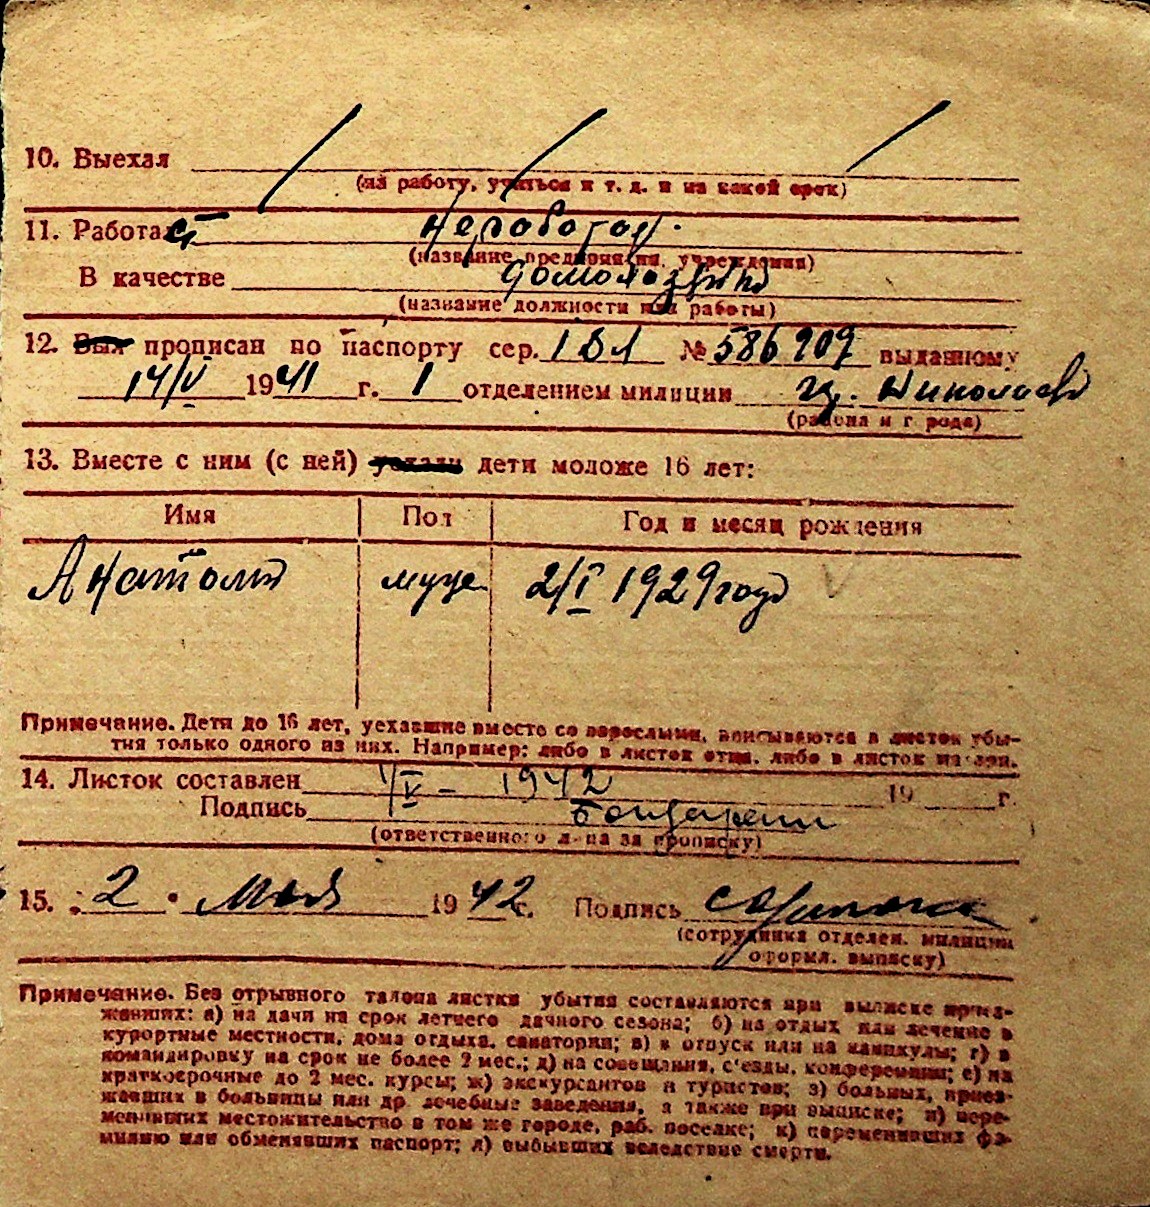 10. Выехал
(на работу, учиться и т. д. и на какой срок)
11. Работа
не работал.
(название предприятия, учреждения)
В качестве домохозяйка
(название должности или работы)
12. Был прописан по паспорту сер. № 586909 выданному
14/V 1941 г. 1 отделением милиции Николаев
(района и города)
13. Вместе с ним (с ней) уехали дети моложе 16 лет:
Имя Пол Год и месяц рождения
Анатолий муже 2/I 1929 года
Примечание. Дети до 16 лет, уехавшие вместе со взрослыми, вписываются в листок убы-
тия только одного из них. Например: либо в листок отца, либо в листок матери.
14. Листок составлен 1/V - 1942 19 г.
Подпись
(ответственного лица за прописку)
15. 2 мая 1942 г. Подпись
(сотрудника отделен. милиции
оформл. выписку)
Примечание. Без отрывного талона листки убытия составляются при выписке приез-
жавших: а) на дачи на срок летнего дачного сезона; б) на отдых или лечение в
курортные местности, дома отдыха, санатории; в) в отпуск или на каникулы; г) в
командировку на срок не более 2 мес.; д) на совещания, с'езды, конференции; е) на
краткосрочные до 2 мес. курсы; ж) экскурсантов и туристов; з) больных, приез-
жавших в больницы или др лечебные заведения, а также при выписке; и) пере-
менивших местожительство в том же городе, раб. поселке; к) переменивших фа-
милию или обменявших паспорт; л) выбывших вследствие смерти.